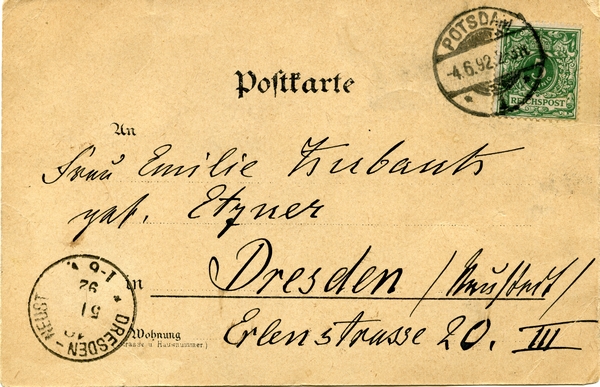 POTSDAM
-4.6.92.
REICHSPOST
Postkarte
An
Frau Emilie Zubants
geb. Etzner
in Dresden /Neustadt/
Wohnung
(Strasse u. Hausnummer.)
Erlenstrasse 20. III
DRESDEN-NEUST.
5/
92